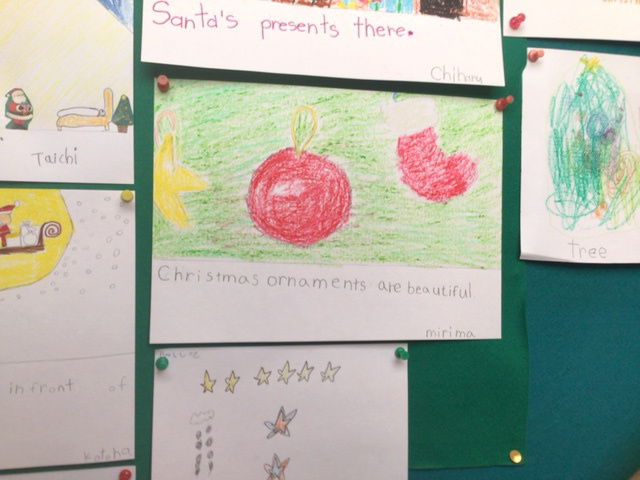 Santa's presents there.
Chiharu
Taichi
Christmas ornaments are beautiful
mirima
Tree
in front of
Kotoha